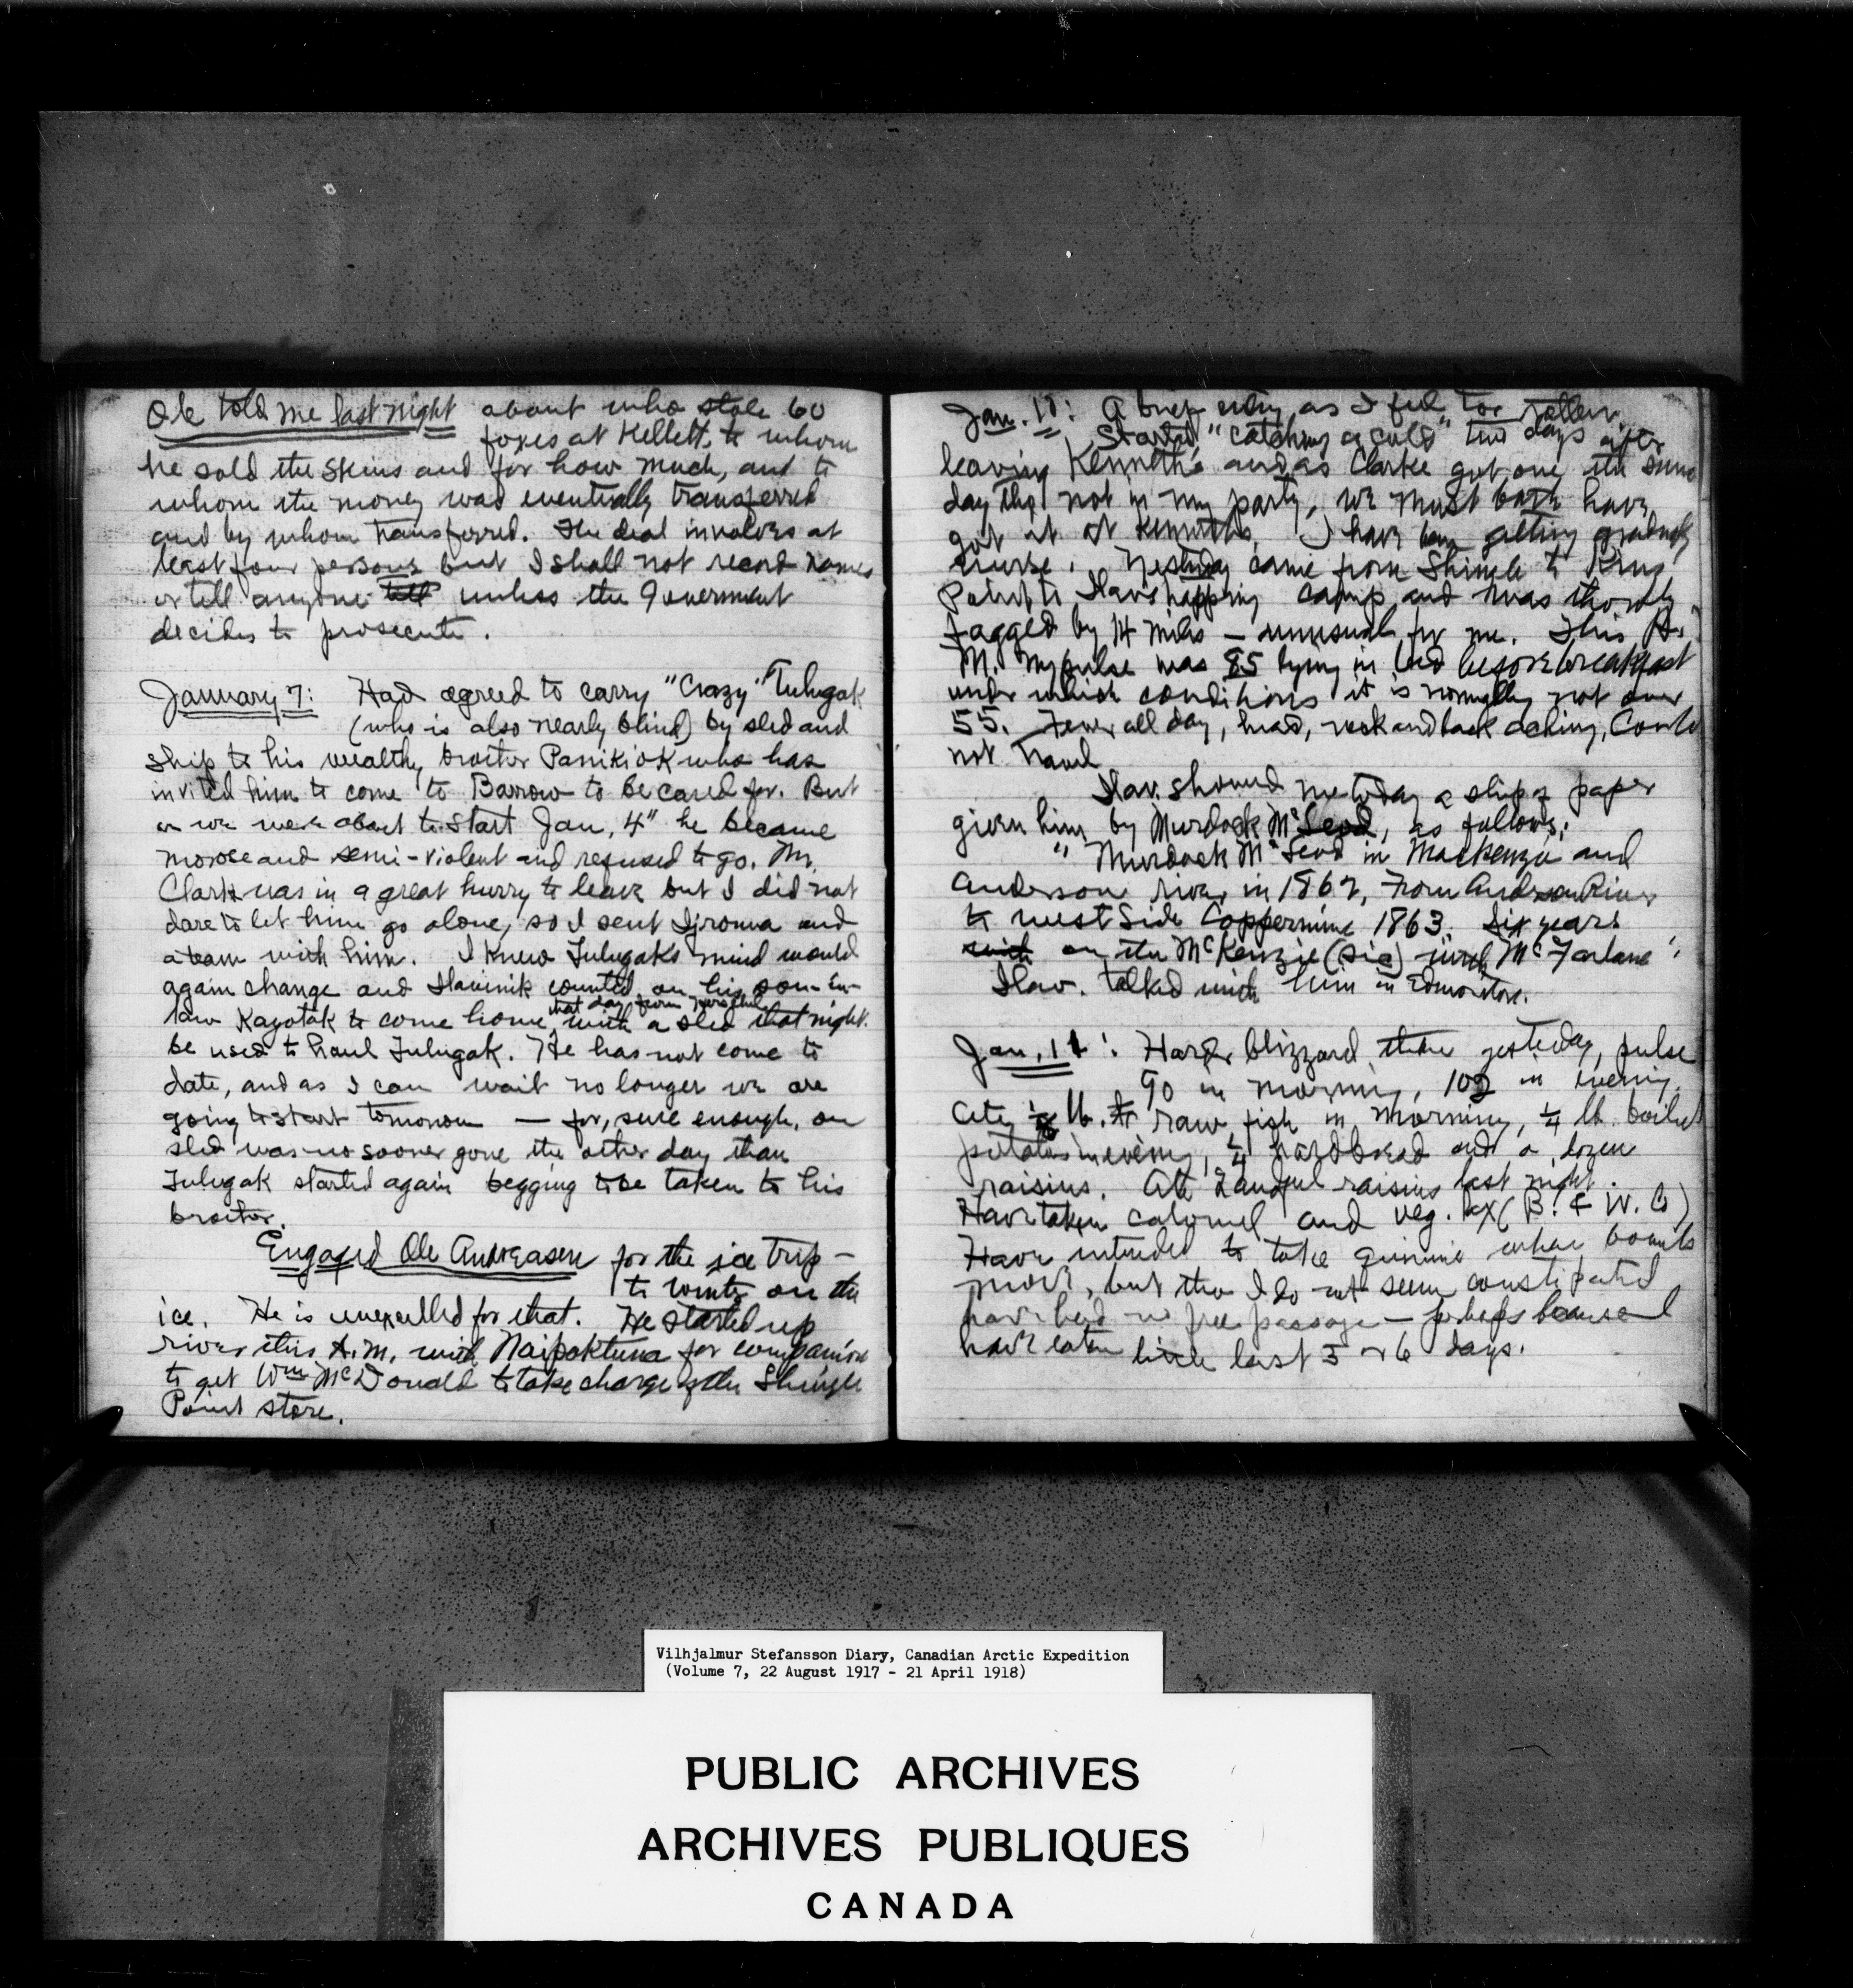 Ole told me last night about who stole 60
foxes at Kellett, to whom
he sold the skins and for how much, and to
whom the money was eventually transferred
and by whom transferred. The deal involves at
least four persons but I shall not record names
or tell anyone tell unless the Government
decides to prosecute.
January 7: Had agreed to carry "Crazy" Tulugak
(who is also nearly blind) by sled and
ship to his wealthy brother Panikiok who has
invited him to come to Barrow to be cared for. But
as we were about to start Jan. 4" he became
morose and semi-violent and refused to go. Mr.
Clark was in a great hurry to leave but I did not
dare to let him go alone, so I sent and
a team with him. I knew Tulugak's mind would
again change and Ilavinik counted on his son-in-
that day from
law Kayotak to come home with a sled that night.
be used to haul Tulugak. He has not come to
date, and as I can wait no longer we are
going to start tomorrow — for, sure enough, our
sled was no sooner gone the other day than
Tulugak started again begging to be taken to his
brother.
Engaged Ole Andreasen for the ice trip —
to winter on the
ice. He is unexcelled for that. He started up
river this A.M. with Naipaktuna for companion
to get Wm McDonald to take charge of the Shingle
Point store.
Jan. 10: A brief entry as I feel too rotten.
Started "catching a cold" two days after
leaving Kenneth's and as Clarke got one the same
day tho not in my party, we must both have
got it at Kenneth's. I have been getting gradually
worse. Yesterday came from Shingle to King
Point to Ilav's camp and was thoroly
fagged by 14 miles — unusual for me. This A.
M. my pulse was 85 lying in bed before breakfast
under which conditions it is normally not over
55. Fever all day, head, neck and back aching, Could
not travel
Ilav. showed me today a slip of paper
given him by Murdock McLeod, as follows:
"Murdock McLeod in Mackenzie and
Anderson river in 1862, From Anderson River
to west side Coppermine 1863. Six years
with on the McKenzie (sic) with McFarlane".
Ilav. talked with him in Edmonton.
Jan. 11: Harder blizzard than yesterday, pulse
90 in morning, 102 in evening.
Ate lb. raw fish in morning, ¼ lb. boiled
potatoes in evening, ¼ hardbread and a dozen
raisins. Ate handful raisins last night.
Have taken calomel and veg. lax (B. & W. Co)
Have intended to take quinine when bowels
move, but tho I do not seem constipated
have had no free passage — perhaps because I
have eaten little last 5 or 6 days.
Vilhjalmur Stefansson Diary, Canadian Arctic Expedition
(Volume 7, 22 August 1917 - 21 April 1918)
PUBLIC ARCHIVES
ARCHIVES PUBLIQUES
CANADA